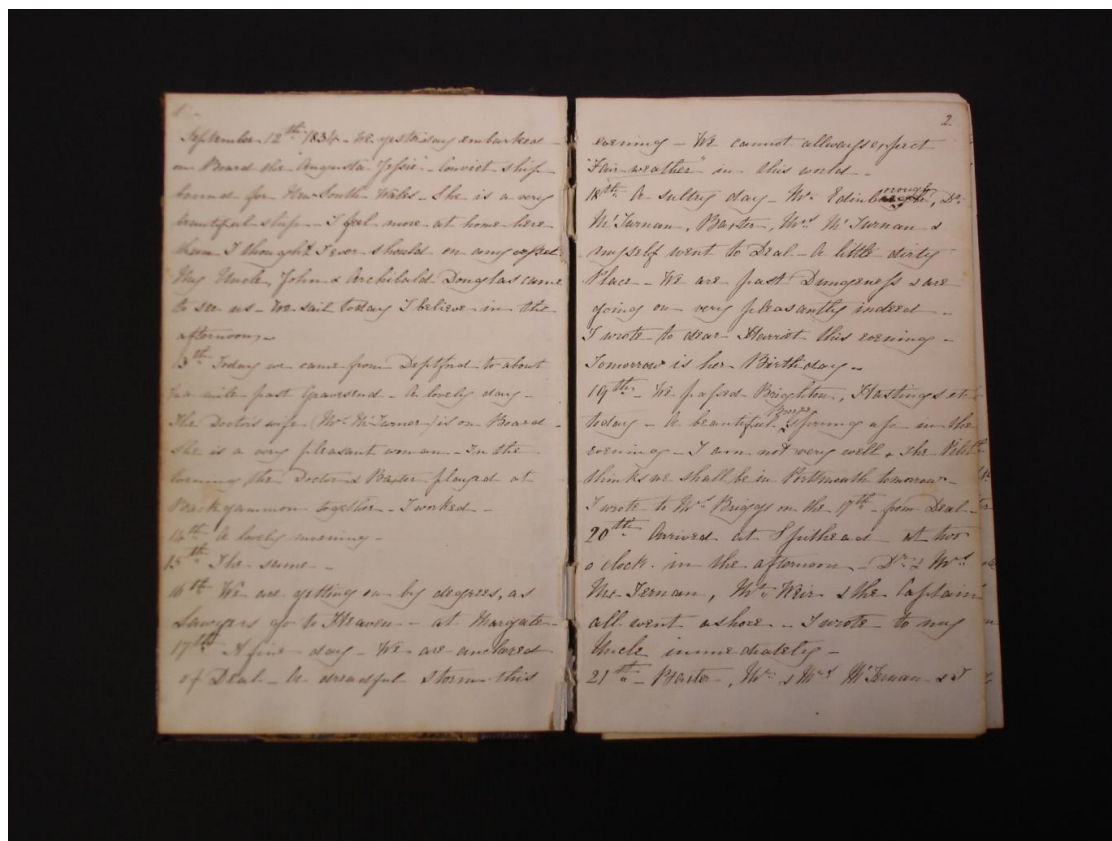 September 12th 1834 - We yesterday embarked
on Board the "Augusta Jessie" Convict ship
bound for New South Wales - She is a very
beautiful ship - I feel more at home here
than I thought I ever should on any
My Uncle, John & Archibald Douglas came
to see us - We sail today I believe in the
afternoon -
13th Today we came from Deptford to about
a mile past Gravesend - A lovely day -
The Doctors wife (Mrs McTurner) is on Board -
She is a very pleasant woman - In the
Evening the Doctor & Baxter played at
Backgammon together - I worked -
14th A lovely morning -
15th The same -
16th We are getting on by degrees, as
Lawyers go to Heaven - at Margate -
17th A fine day - We are anchored
of Deal - A dreadful storm this
2
evening - We cannot allways expect
"Fair weather" in this world -
18th A sultry day - Mr Edinborough, Dr
McTurnan, Baxter, Mrs McTurnan &
myself went to Deal - A little dirty
Place - We are past Dungeness & are
going on very pleasantly indeed -
I wrote to dear Harriet this evening -
Tomorrow is her Birthday -
19th - We passed Brighton, Hastings etc
today - A beautiful Breeze sprung up in the
evening - I am not very well & the Pilot
thinks we shall be in Portsmouth tomorrow -
I wrote to Mrs Briggs on the 17th from Deal -
20th Arrived at Spithead at two
o clock in the afternoon - Dr & Mrs
McTernan, Mr Weir & the Captain
all went ashore - I wrote to my
Uncle immediately -
21st - Baxter, Mr & Mrs McTernan & I